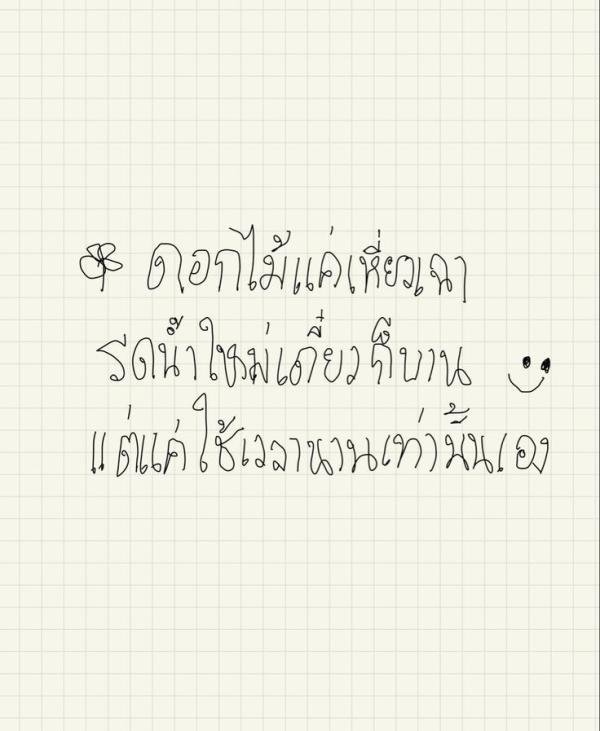 ดอกไม้แค่เหี่ยวเฉา
รดน้ำใหม่เดี๋ยวก็บาน
แต่แค่ใช้เวลานานเท่านั้นเอง